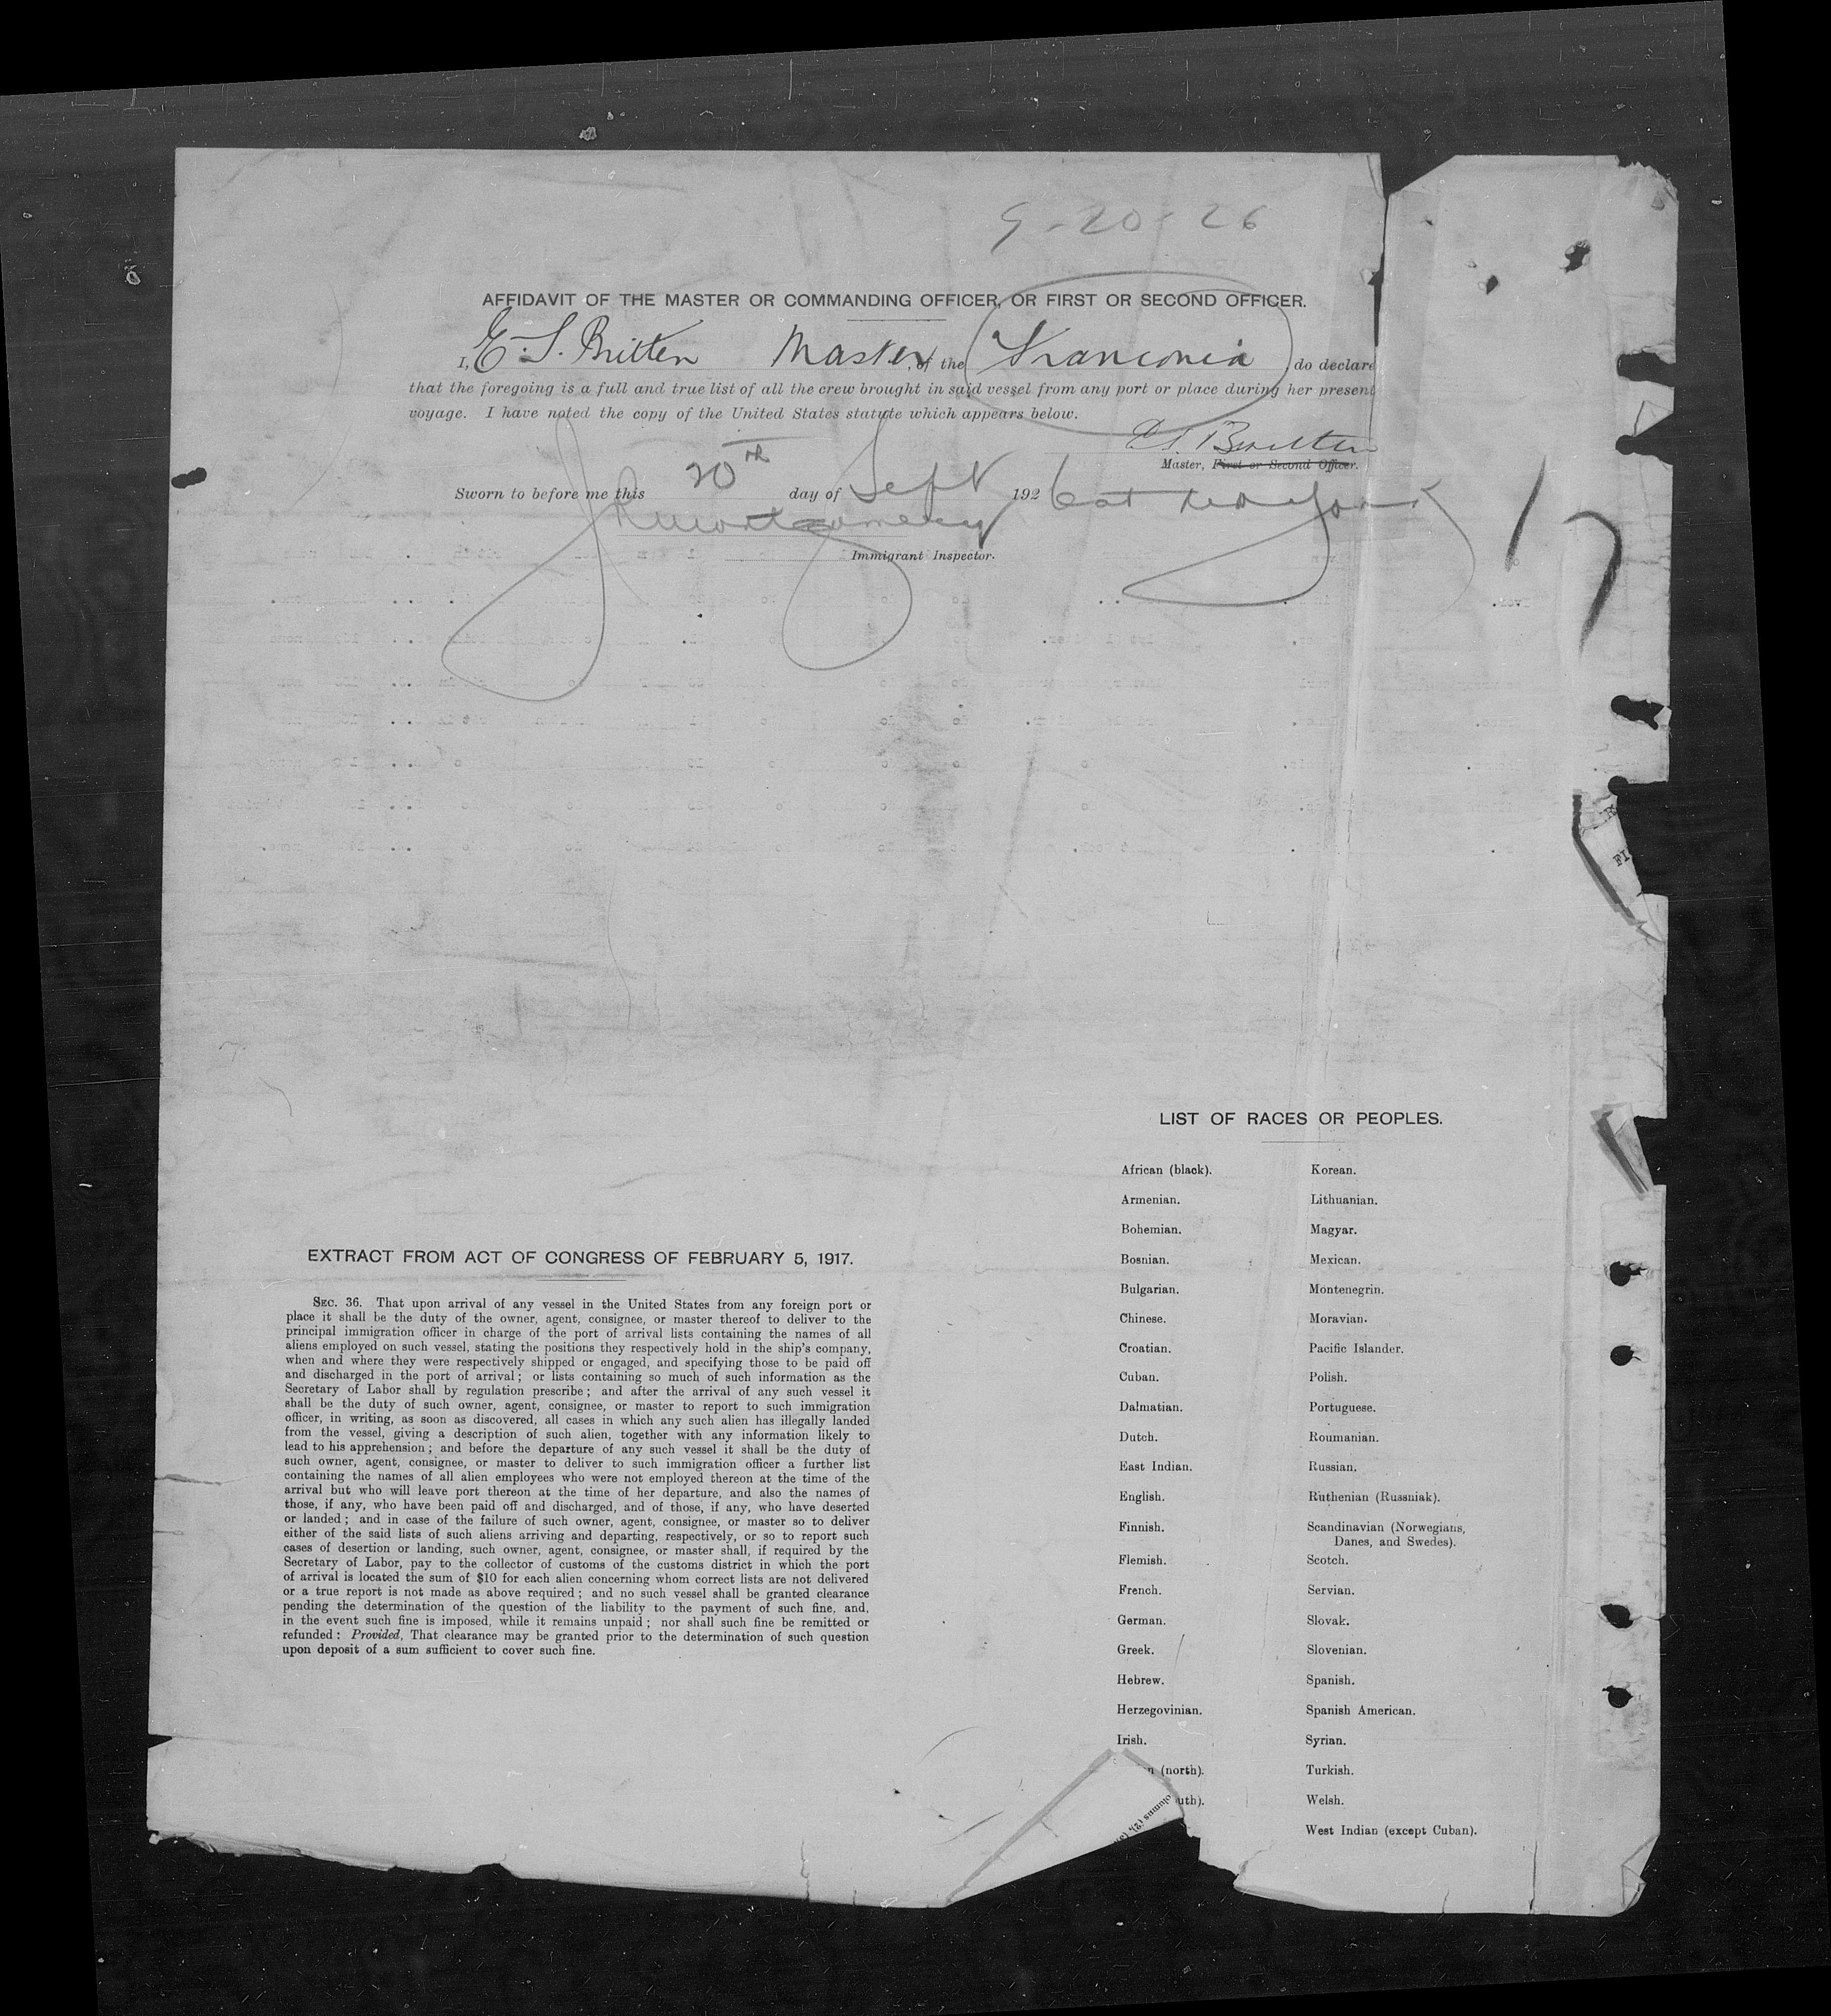 9-20-26
AFFIDAVIT OF THE MASTER OR COMMANDING OFFICER, OR FIRST OR SECOND OFFICER.
I, E. S. Britten Master, of the Franconia, do declare
that the foregoing is a full and true list of all the crew brought in said vessel from any port or place during her present
voyage. I have noted the copy of the United States statute which appears below.
E.S. Britten
Master, First or Second Officer.
Sworn to before me this 20th day of Sept 1926 at New York
Montgomery
Immigrant Inspector.
17
FI
LIST OF RACES OR PEOPLES.
African (black).
Armenian.
Bohemian.
Bosnian.
Bulgarian.
Chinese.
Croatian.
Cuban.
Dalmatian.
Dutch.
East Indian.
English.
Finnish.
Flemish.
French.
German.
Greek.
Hebrew.
Herzegovinian.
Irish.
n (north).
uth).
Korean.
Lithuanian.
Magyar.
Mexican.
Montenegrin.
Moravian.
Pacific Islander.
Polish.
Portuguese.
Roumanian.
Russian.
Ruthenian (Russniak).
Scandinavian (Norwegians,
Danes, and Swedes).
Scotch.
Servian.
Slovak.
Slovenian.
Spanish.
Spanish American.
Syrian.
Turkish.
Welsh.
West Indian (except Cuban).
olumns (2), (3)
EXTRACT FROM ACT OF CONGRESS OF FEBRUARY 5, 1917.
SEC. 36. That upon arrival of any vessel in the United States from any foreign port or
place it shall be the duty of the owner, agent, consignee, or master thereof to deliver to the
principal immigration officer in charge of the port of arrival lists containing the names of all
aliens employed on such vessel, stating the positions they respectively hold in the ship's company,
when and where they were respectively shipped or engaged, and specifying those to be paid off
and discharged in the port of arrival; or lists containing so much of such information as the
Secretary of Labor shall by regulation prescribe; and after the arrival of any such vessel it
shall be the duty of such owner, agent, consignee, or master to report to such immigration
officer, in writing, as soon as discovered, all cases in which any such alien has illegally landed
from the vessel, giving a description of such alien, together with any information likely to
lead to his apprehension; and before the departure of any such vessel it shall be the duty of
such owner, agent, consignee, or master to deliver to such immigration officer a further list
containing the names of all alien employees who were not employed thereon at the time of the
arrival but who will leave port thereon at the time of her departure, and also the names of
those, if any, who have been paid off and discharged, and of those, if any, who have deserted
or landed; and in case of the failure of such owner, agent, consignee, or master so to deliver
either of the said lists of such aliens arriving and departing, respectively, or so to report such
cases of desertion or landing, such owner, agent, consignee, or master shall, if required by the
Secretary of Labor, pay to the collector of customs of the customs district in which the port
of arrival is located the sum of $10 for each alien concerning whom correct lists are not delivered
or a true report is not made as above required; and no such vessel shall be granted clearance
pending the determination of the question of the liability to the payment of such fine, and,
in the event such fine is imposed, while it remains unpaid; nor shall such fine be remitted or
refunded: Provided, That clearance may be granted prior to the determination of such question
upon deposit of a sum sufficient to cover such fine.